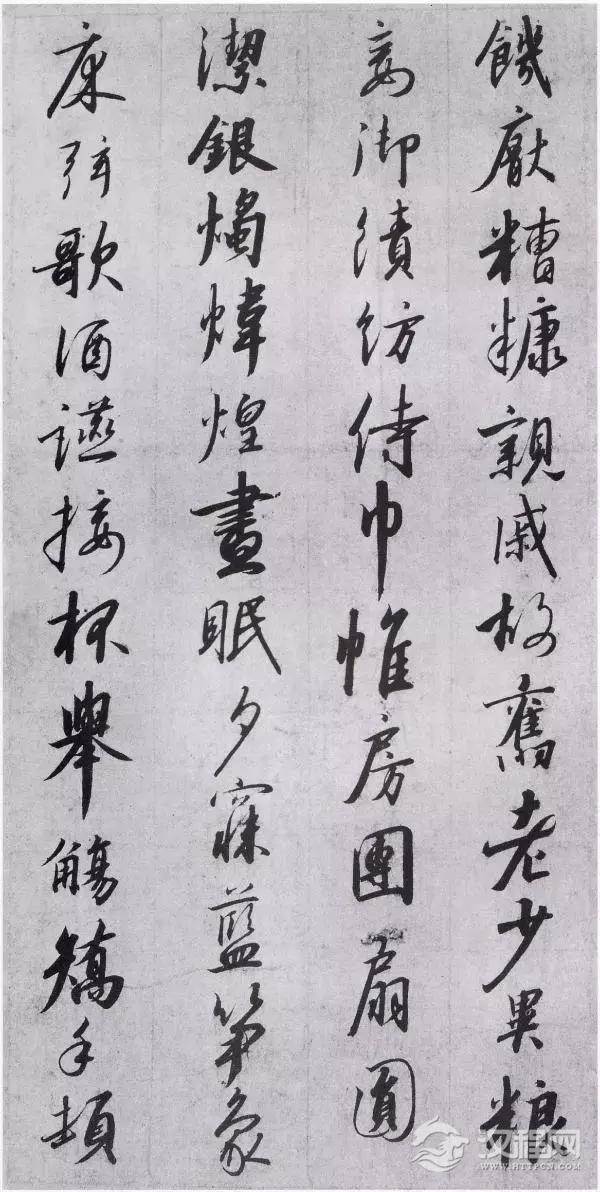 饑厭糟糠親戚故舊老少異粮
妾御績紡侍巾帷房團扇圓
潔銀燭煒煌晝眠夕寐藍笋象
床弦歌酒讌接杯舉觴矯手頓
汉程网
WWW.HTTPCN.COM